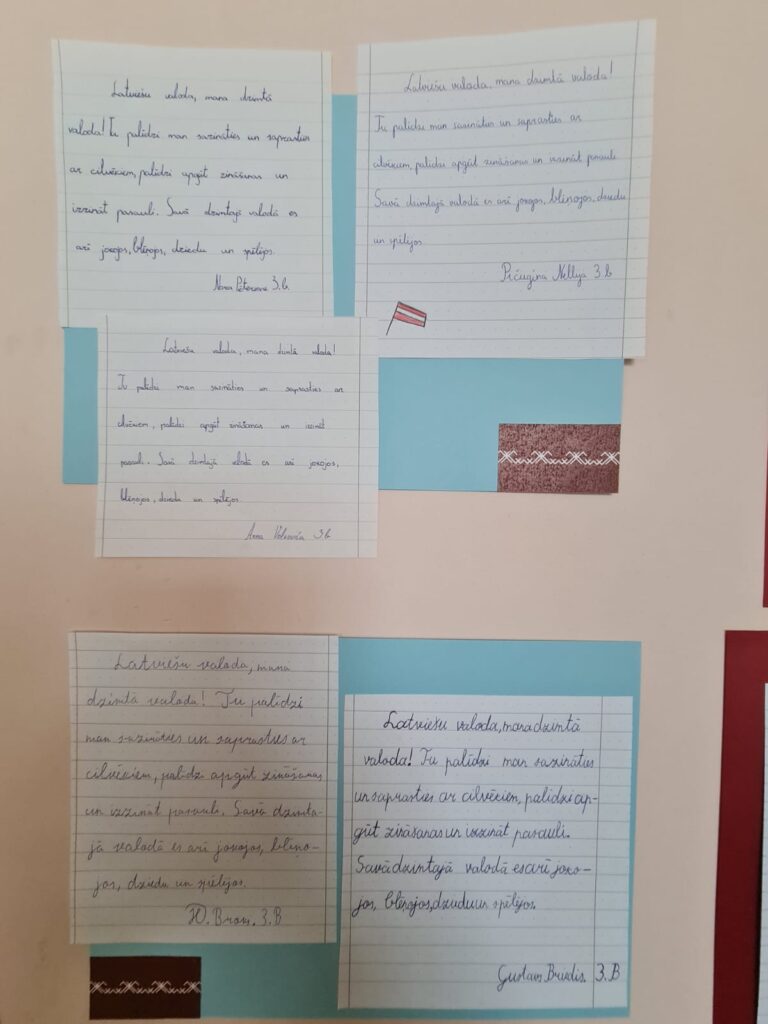 Latviešu valoda, mana dzimtā
valoda! Tu palīdzi man sazināties un saprasties
ar cilvēkiem, palīdzi apgūt zināšanas un
izzināt pasauli. Savā dzimtajā valodā es
arī jokojos, blēņojos, dziedu un spēlējos.
3.b
Latviešu valoda, mana dzimtā valoda!
Tu palīdzi man sazināties un saprasties ar
cilvēkiem, palīdzi apgūt zināšanas un izzināt pasauli
Savā dzimtajā valodā es arī jokojos, blēņojos, dziedu
un spēlējos
Pičugina Nellija 3.b
Latviešu valoda, mana dzimtā valoda!
Tu palīdzi man sazināties un saprasties ar
cilvēkiem, palīdzi apgūt zināšanas un izzināt
pasauli. Savā dzimtajā valodā es arī jokojos,
blēņojos, dziedu un spēlējos.
Anna 3.b
Latviešu valoda, mana
dzimtā valoda! Tu palīdzi
man sazināties un saprasties ar
cilvēkiem, palīdzi apgūt zināšanas
un izzināt pasauli. Savā dzimta-
jā valodā es arī jokojos, bļeņo-
jos, dziedu un spēlējos.
3.B
Latviešu valoda, mana dzimtā
valoda! Tu palīdzi man sazināties
un saprasties ar cilvēkiem, palīdzi ap-
gūt zināšanas un izzināt pasauli.
Savā dzimtajā valodā es arī joko-
jos, blēņojos, dziedu un spēlējos.
Gustavs 3.B